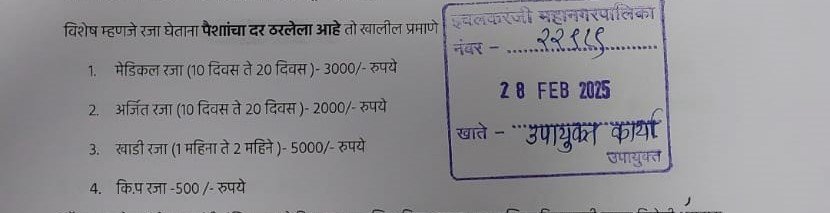 विशेष म्हणजे रजा घेताना पैशांचा दर ठरलेला आहे तो खालील प्रमाणे
1. मेडिकल रजा (10 दिवस ते 20 दिवस )- 3000/- रुपये
2. अर्जित रजा (10 दिवस ते 20 दिवस )- 2000/- रुपये
3. खाडी रजा (1 महिना ते 2 महिने )- 5000/- रुपये
4. कि.प रजा -500 /- रुपये
इचलकरंजी महानगरपालिका
नंबर -
28 FEB 2025
खाते - उपायुक्त कार्या
उपायुक्त